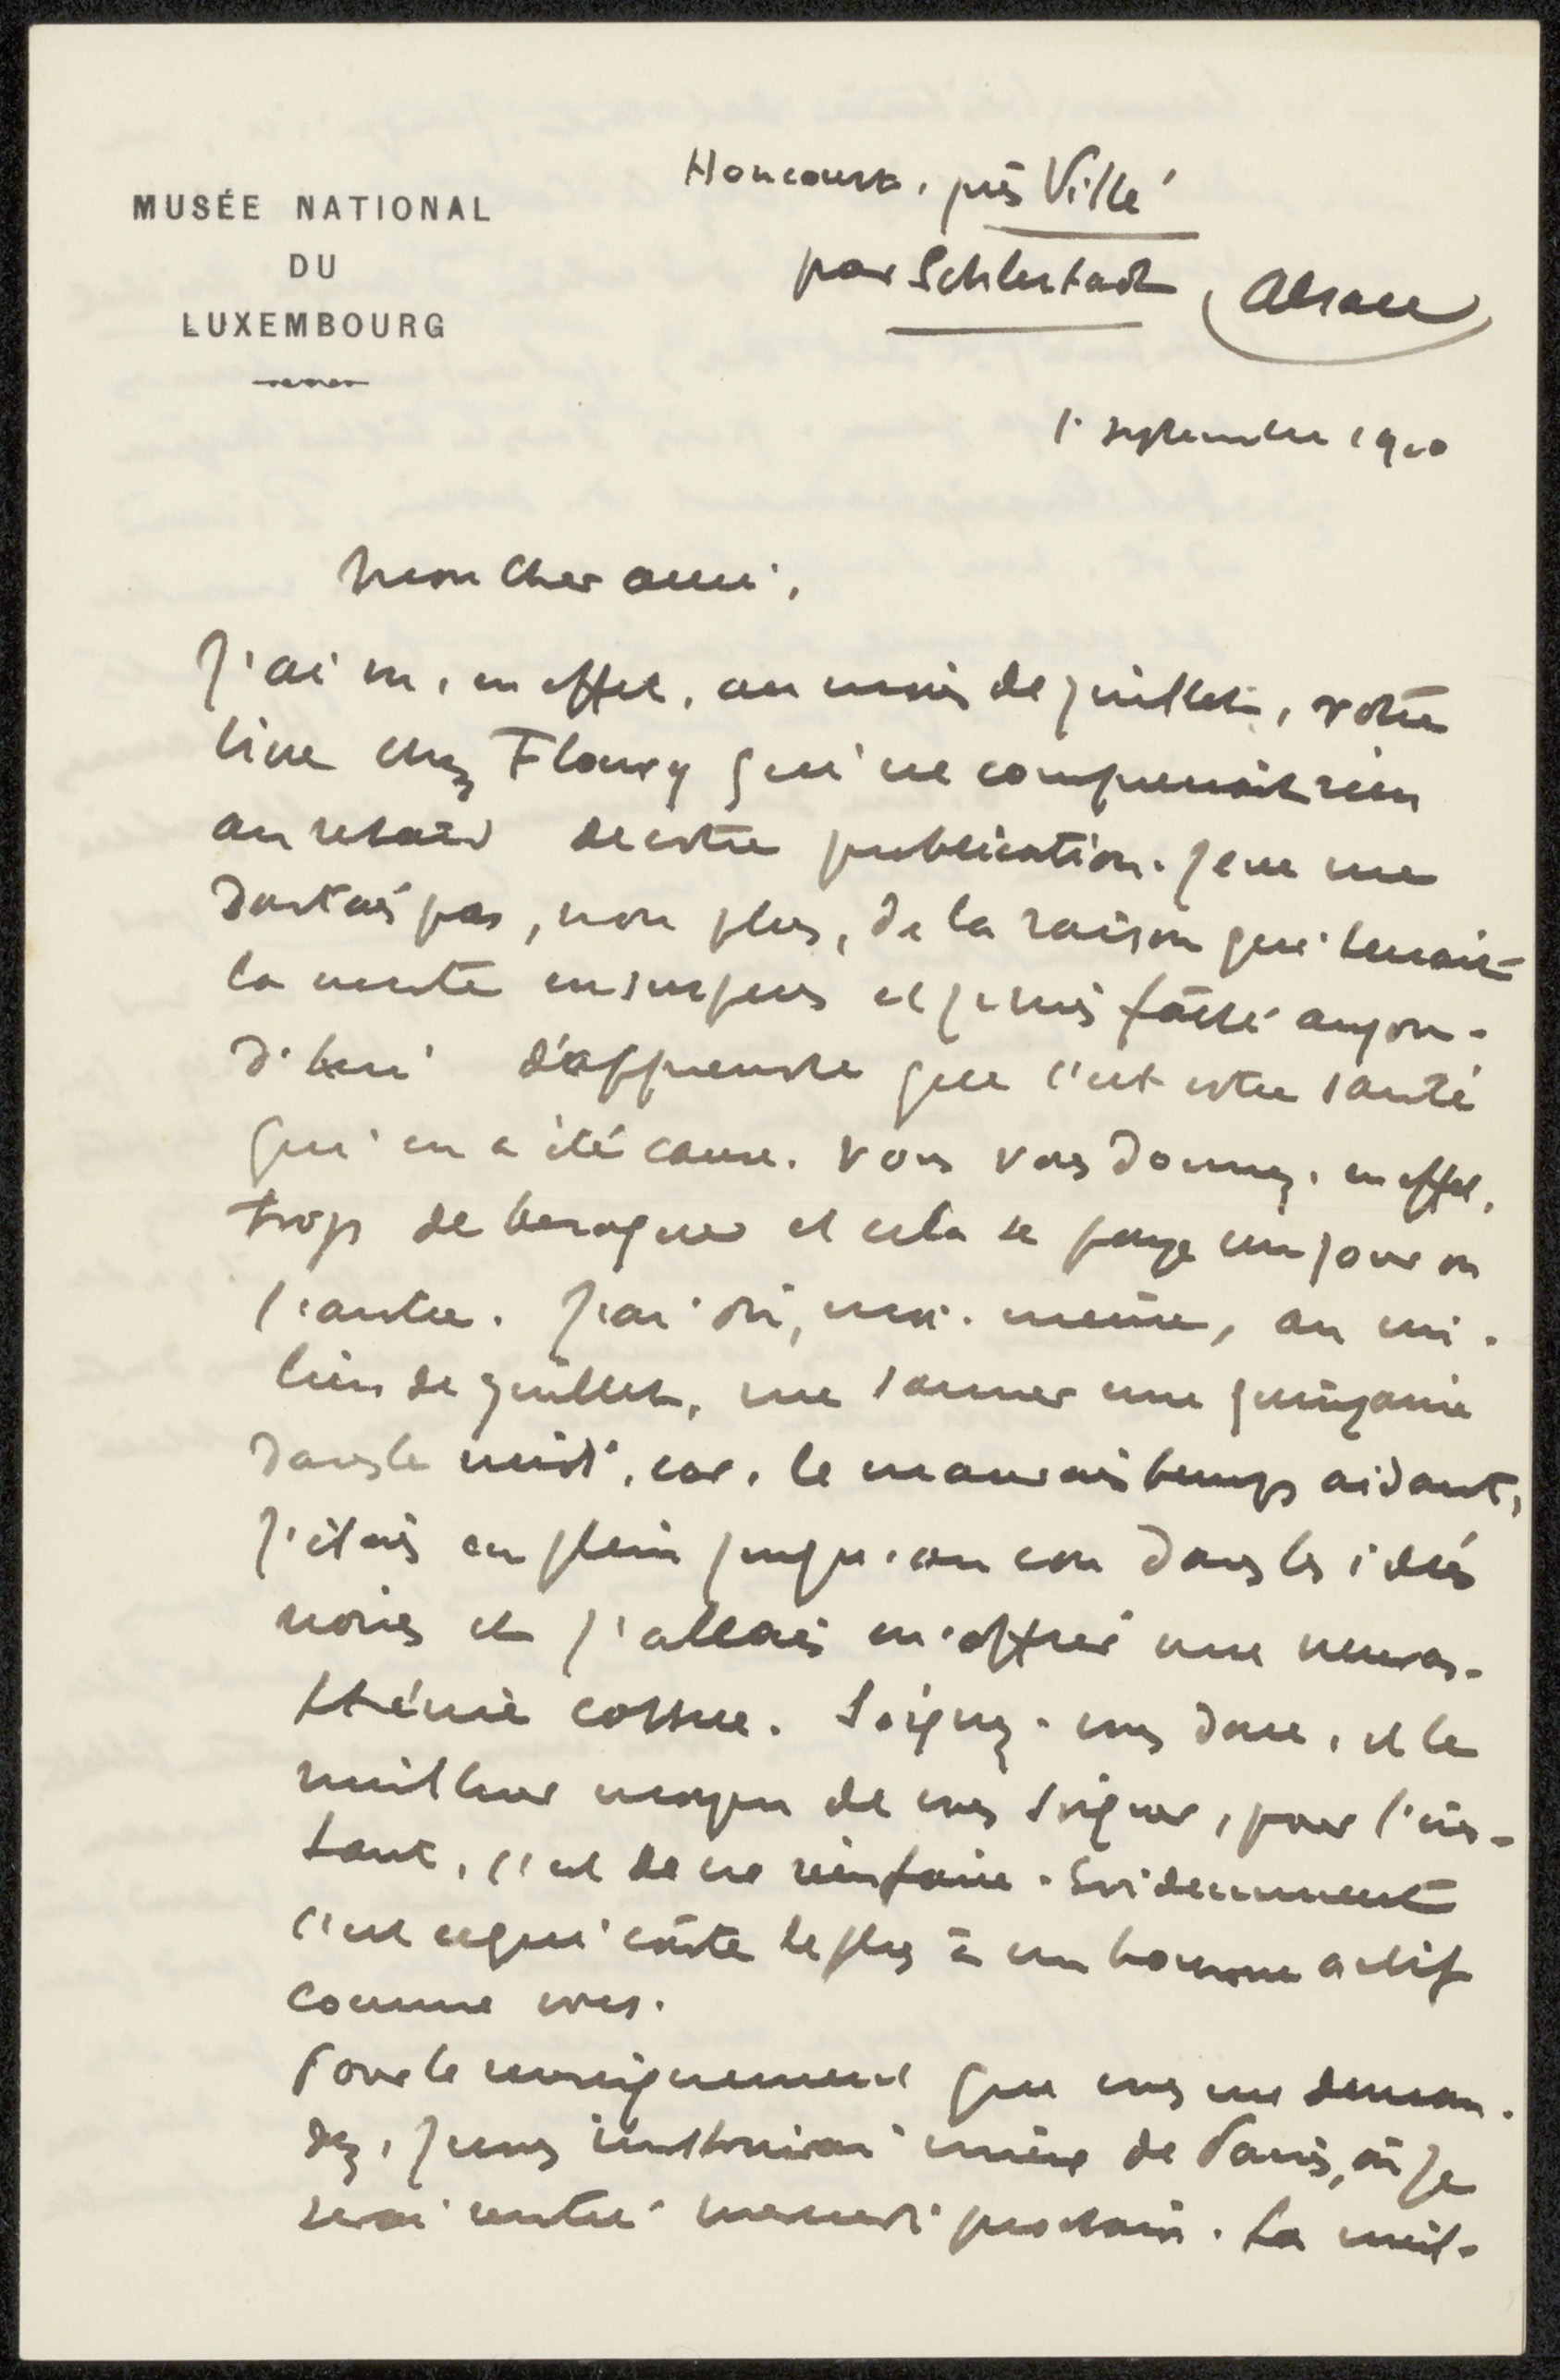 MUSÉE NATIONAL
DU
LUXEMBOURG
Honcourt, près Villé
par Schlestadt (Alsace)
1er septembre 1910
Mon cher ami,
J'ai vu, en effet, au mois de juillet, votre
livre chez Floury qui ne comprenait rien
au retard de votre publication. Je ne me
doutais pas, non plus, de la raison qui tenait
la vente en suspens et je suis fâché aujour-
d'hui d'apprendre que c'est votre santé
qui en a été cause. Vous vous donnez, en effet,
trop de besogne et cela se paye un jour ou
l'autre. J'ai dû, moi-même, au mi-
lieu de juillet, me sauver une quinzaine
dans le midi, car, le mauvais temps aidant,
j'étais en plein jusqu'au cou dans les idées
noires et j'allais m'offrir une neuras-
thénie cossue. Soignez-vous donc, et le
meilleur moyen de vous soigner, pour l'ins-
tant, c'est de ne rien faire. Evidemment
c'est ce qui coûte le plus à un homme actif
comme vous.
Pour le renseignement que vous me deman-
dez, je vous instruirai mieux de Paris, où je
serai rentré mercredi prochain. La meil-